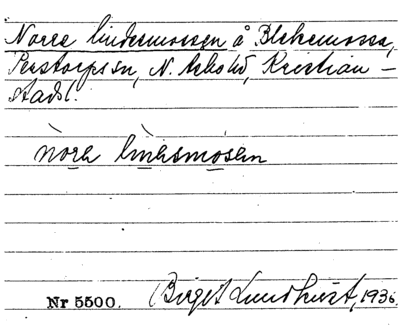 Norra lindermossen å Blekemossa,
Perstorps sn, N. Åsbo hd, Kristian-
stads l.
nòra lìnhsmosen
Nr 5500. Birget Lundquist, 1936